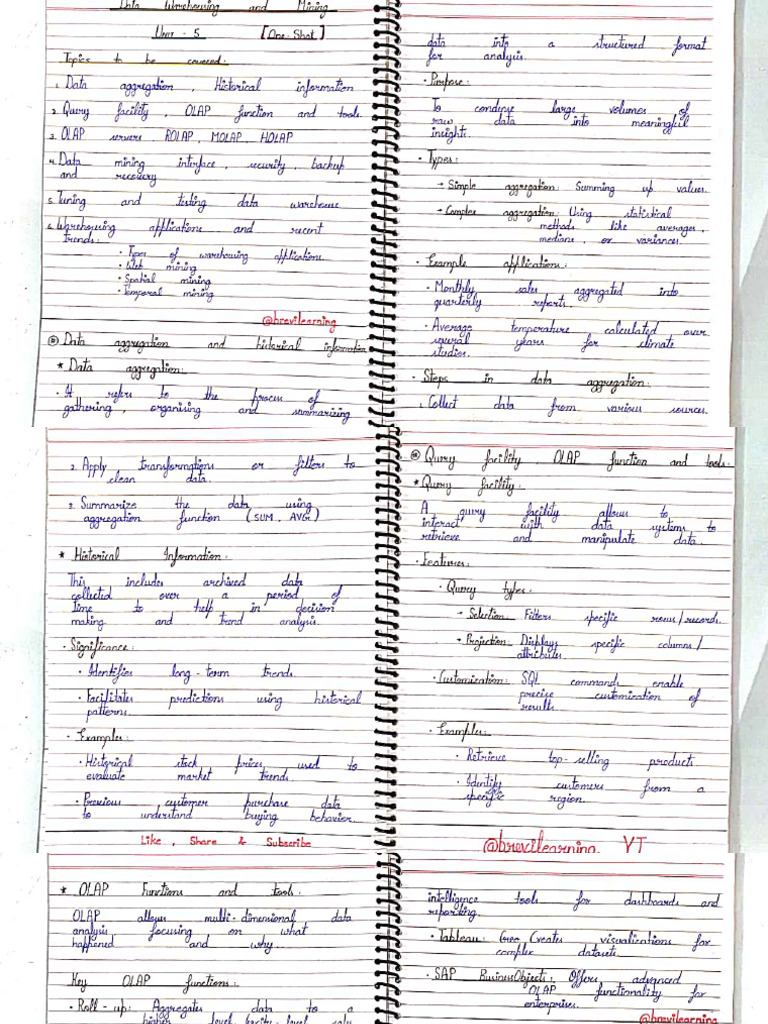 Data Warehousing and Mining
Unit - 5 [One Shot]
Topics to be covered:
1. Data aggregation, Historical information
2. Query facility, OLAP function and tools.
3. OLAP servers ROLAP, MOLAP, HOLAP
4. Data mining interface, security, backup
and recovery
5. Tuning and testing data warehouse
6. Warehousing applications and recent
trends:
• Types of warehousing applications
• Web mining
• Spatial mining
• Temporal mining
@brevilearning
Data aggregation and historical information
* Data aggregation:
• It refers to the process of
gathering, organising and summarizing
data into a structured format
for analysis.
• Purpose:
To condense large volumes of
raw data into meaningful
insights.
• Types:
→ Simple aggregation: Summing up values.
→ Complex aggregation: Using statistical
methods like averages,
medians, or variances.
• Example applications:
• Monthly sales aggregated into
quarterly reports.
• Average temperature calculated over
several years for climate
studies.
• Steps in data aggregation:
1. Collect data from various sources.
2. Apply transformations or filters to
clean data.
3. Summarize the data using
aggregation function (SUM, AVG)
* Historical Information:
This includes archived data
collected over a period of
time to help in decision
making and trend analysis.
• Significance:
• Identifies long-term trends.
• Facilitates predictions using historical
patterns.
• Examples:
• Historical stock prices used to
evaluate market trends
• Previous customer purchase data
to understand buying behavior.
Like, Share & Subscribe
Query facility, OLAP function and tools.
* Query facility:
A query facility allows to
interact with data systems to
retrieve and manipulate data.
• Features:
• Query types:
→ Selection: Filters specific rows/records.
→ Projection: Displays specific columns/
attributes.
• Customization: SQL commands enable
precise customization of
results.
• Examples:
• Retrieve top-selling products
• Identify customers from a
specific region.
@brevilearning. YT
* OLAP Functions and tools:
OLAP allows multi-dimensional data
analysis focusing on what
happened and why.
Key OLAP functions:
• Roll-up: Aggregates data to a
higher level
intelligence tools for dashboards and
reporting.
• Tableau: Creates visualizations for
complex datasets.
• SAP BusinessObjects: Offers advanced
OLAP functionality for
enterprises.
@brevilearning